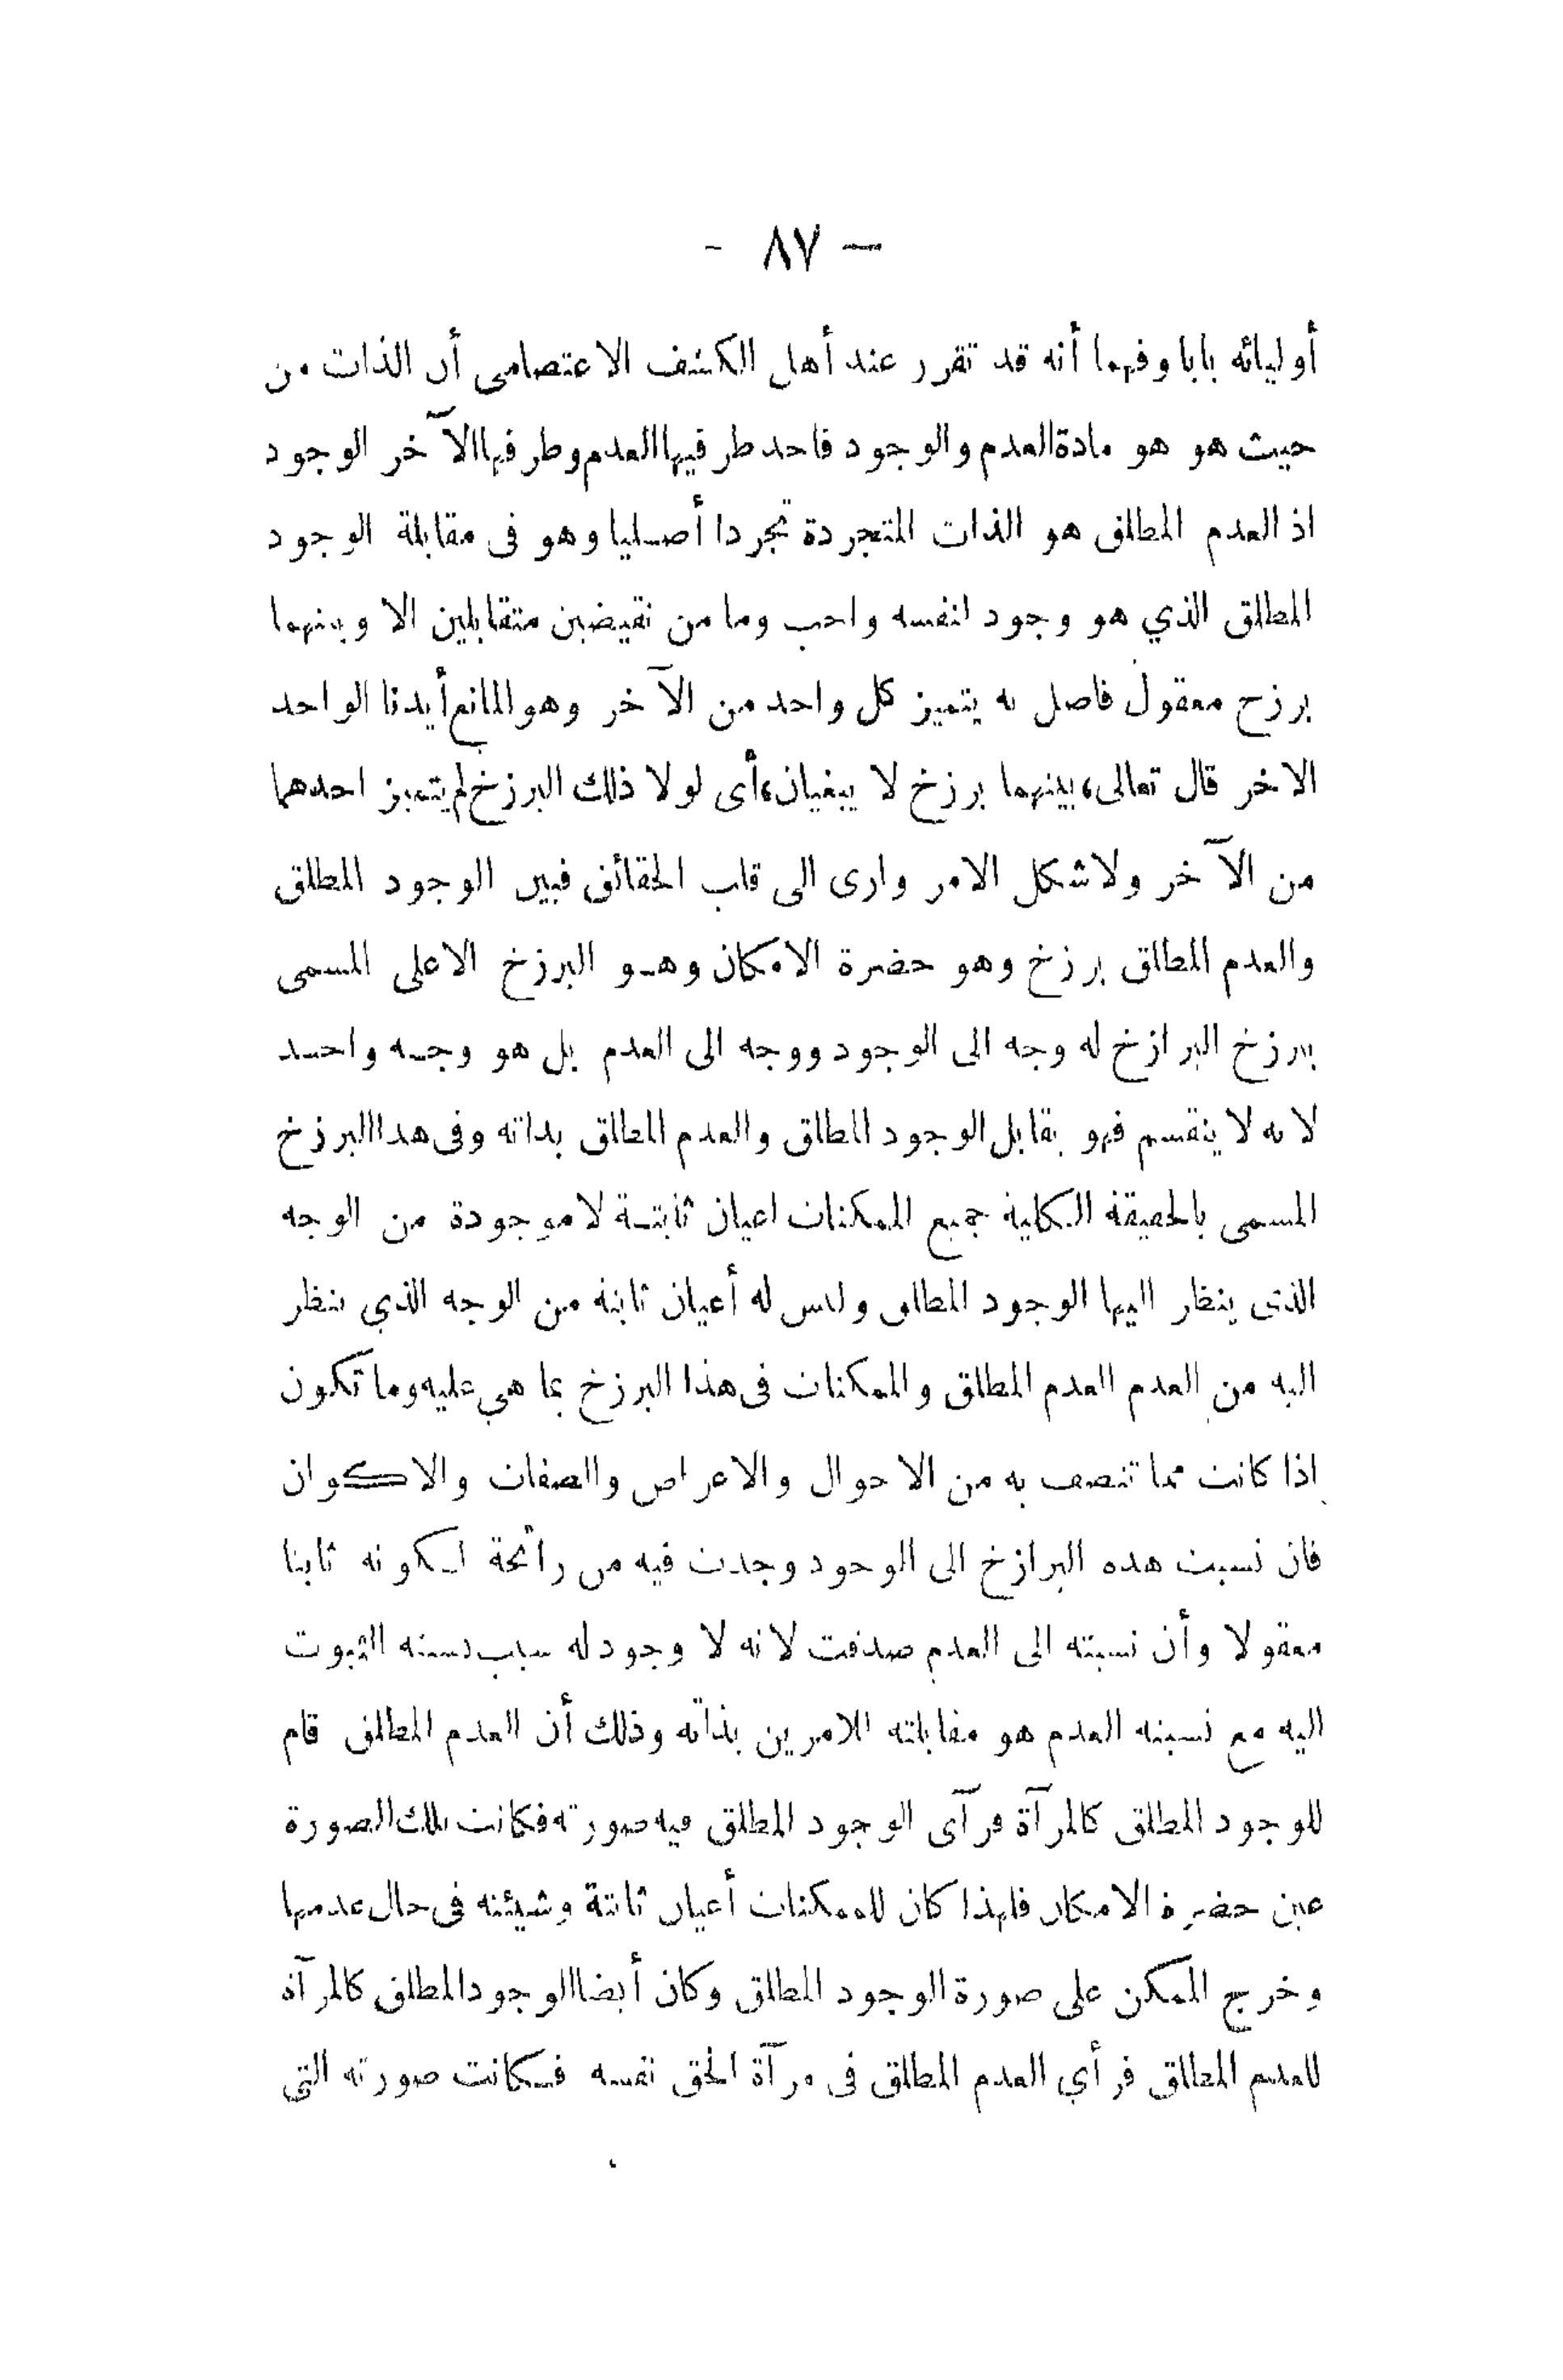 — ٨٧ -
أوليائه بابا وفيها أنه قد تقرر عند أهل الكشف الاعتصامى أن الذات من
حيث هو هو مادة العدم والوجود فاحد طرفيها العدم وطرفها الآخر الوجود
اذ العدم المطلق هو الذات المتجردة تجردا أصليا وهو فى مقابلة الوجود
المطلق الذي هو وجود لنفسه واجب وما من نقيضين متقابلين الا وبينهما
برزح معقول فاصل به يتميز كل واحد من الآخر وهو المانع أيدنا الواحد
الاخر قال تعالى، بينهما برزخ لا يبغيان، أى لولا ذلك البرزخ لم يتميز احدهما
من الآخر ولاشكل الامر وارى الى قلب الحقائق فبين الوجود المطلق
والعدم المطلق برزخ وهو حضرة الامكان وهو البرزخ الاعلى المسمى
ببرزخ البرازخ له وجه الى الوجود ووجه الى العدم بل هو وجه واحد
لانه لا ينقسم فهو يقابل الوجود المطلق والعدم المطلق بداته وفى هدا البرزخ
المسمى بالحقيقة الكلية جميع الممكنات اعيان ثابتة لا موجودة من الوجه
الذى ينظر اليها الوجود المطلق وليس له أعيان ثابتة من الوجه الذي ينظر
اليه من العدم العدم المطلق والممكنات فى هذا البرزخ بما هي عليه وما تكون
اذا كانت مما تتصف به من الاحوال والاعراض والصفات والاكوان
فان نسبت هده البرازخ الى الوحود وجدت فيه من رائحة لكونه ثابتا
معقولا وأن نسبته الى العدم صدفت لانه لا وجود له سبب نسبته الثبوت
اليه مع نسبته العدم هو مقابلته للامرين بذاته وذلك أن العدم المطلق قام
للوجود المطلق كالمرآة فرآى الوجود المطلق فيه صورته فكانت تلك الصورة
عين حضرة الامكان فلهذا كان للممكنات أعيان ثابتة وشيئته فى حال عدمها
وخرج الممكن على صورة الوجود المطلق وكان أيضا الوجود المطلق كالمرآة
للعدم المطلق فرأي العدم المطلق فى مرآة الحق نفسه فكانت صورته التي